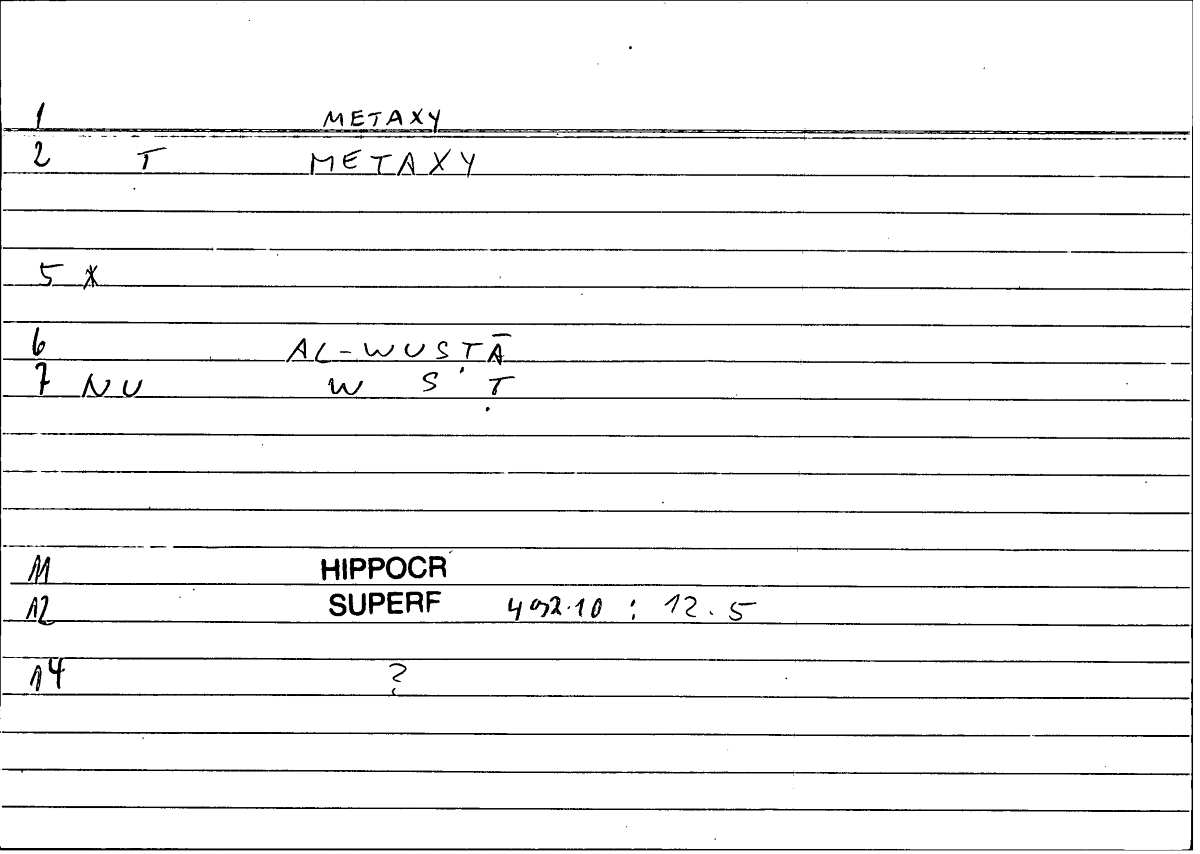 1 METAXY
2 T METAXY
5 *
6 AL-WUSṬĀ
7 NU W S Ṭ
11 HIPPOCR
12 SUPERF 492.10 : 12.5
14 ?